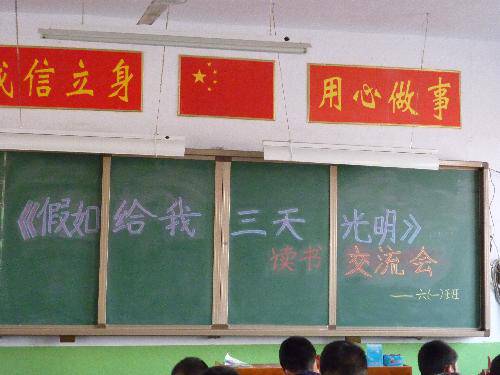 信立身
用心做事
《假如给我三天光明》
读书交流会
——六(一)班